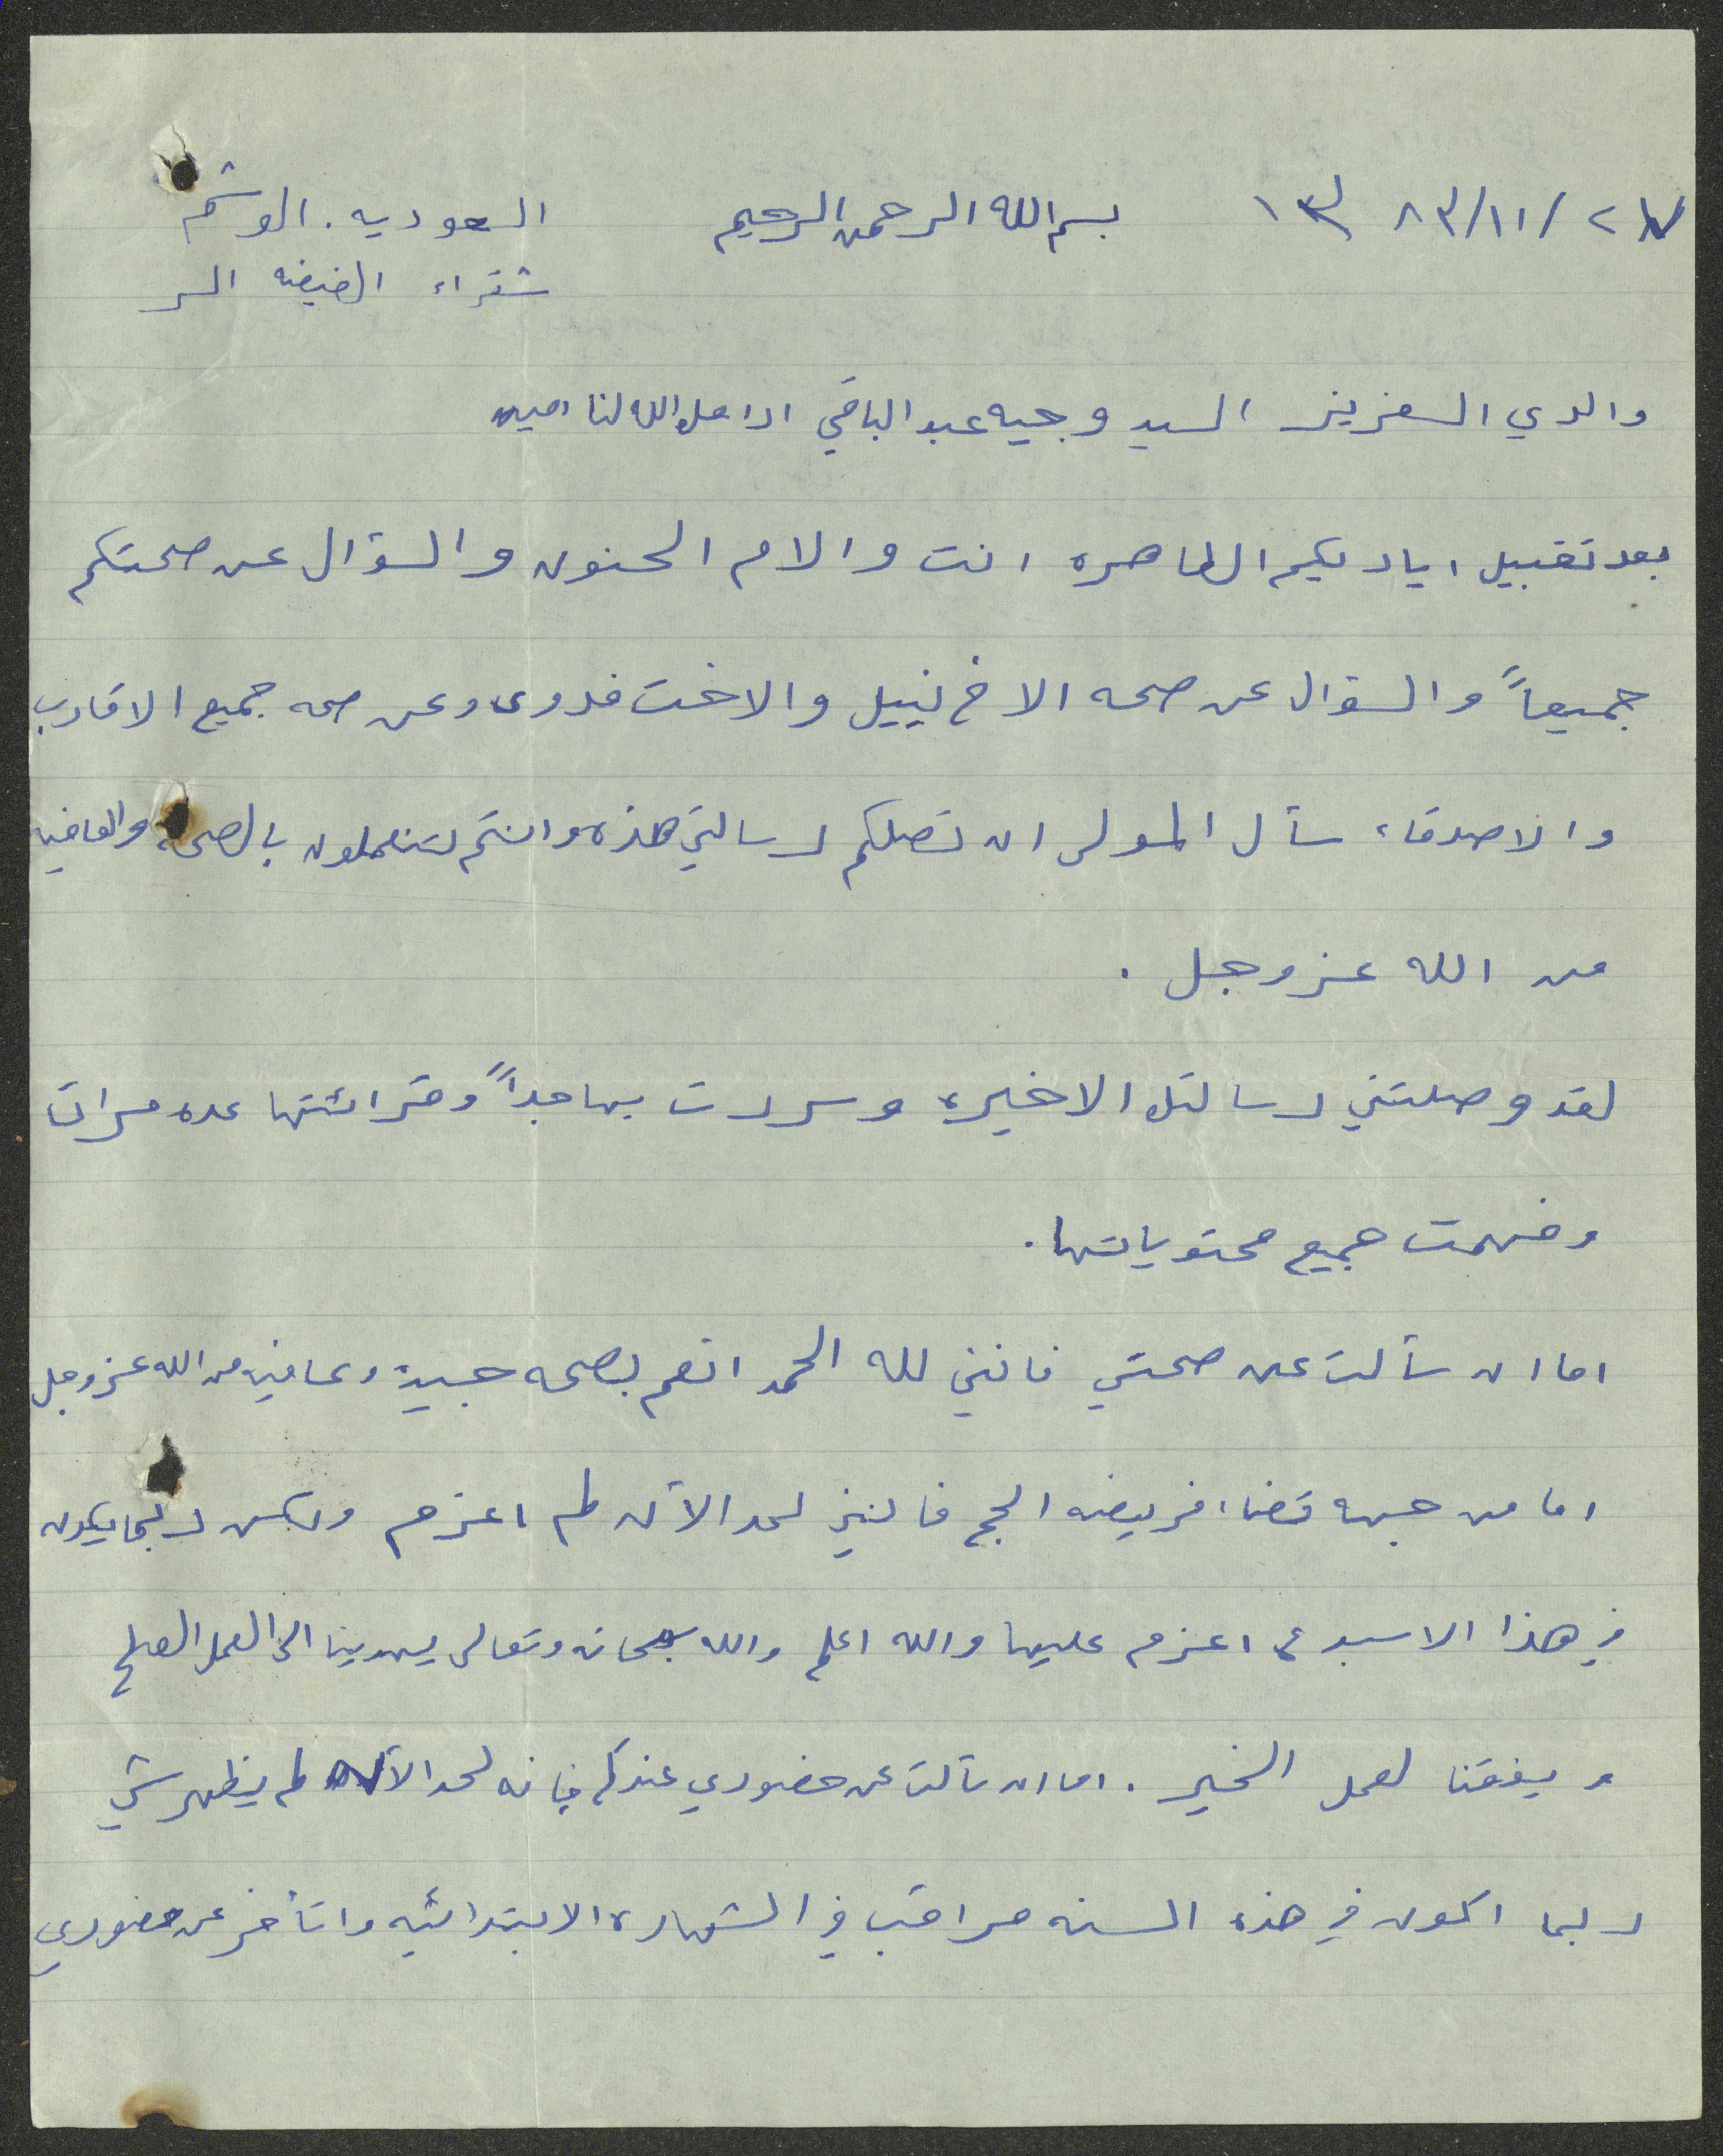 ٢٧/١١/٨٣ ١٣ بسم الله الرحمن الرحيم السعوديه. الوشم
شقراء الفيضه السر
والدي العزيز السيد وجيه عبد الباقي ادامك الله لنا امين
بعد تقبيل اياديكم الطاهره انت والام الحنون والسؤال عن صحتكم
جميعاً والسؤال عن صحه الاخ نبيل والاخت فدوى وعن صحه جميع الاقارب
والاصدقاء سأل المولى ان تصلكم رسالتي هذه وانتم بالصحه والعافيه
من الله عز وجل .
لقد وصلتني رسالتك الاخيره وسررت بها جداً وقرائتها عده مرات
وفهمت جميع محتوياتها.
اما ان سألت عن صحتي فانني لله الحمد انعم بصحه جيدة وعافيه من الله عز وجل
اما من جهه قضاء فريضه الحج فانني لحد الآن لم اعزم ولكن ربما يكون
في هذا الاسبوع اعزم عليها والله اعلم والله سبحانه وتعالى يهدينا الى العمل الصلح
ويفقنا لعمل الخير . اما ان سألت عن حضوري عندكم فانه لحد الآن لم يظهر شي
ربما اكون في هذه السنه مراقب في الشهاده الابتدائيه واتأخر عن حضوري